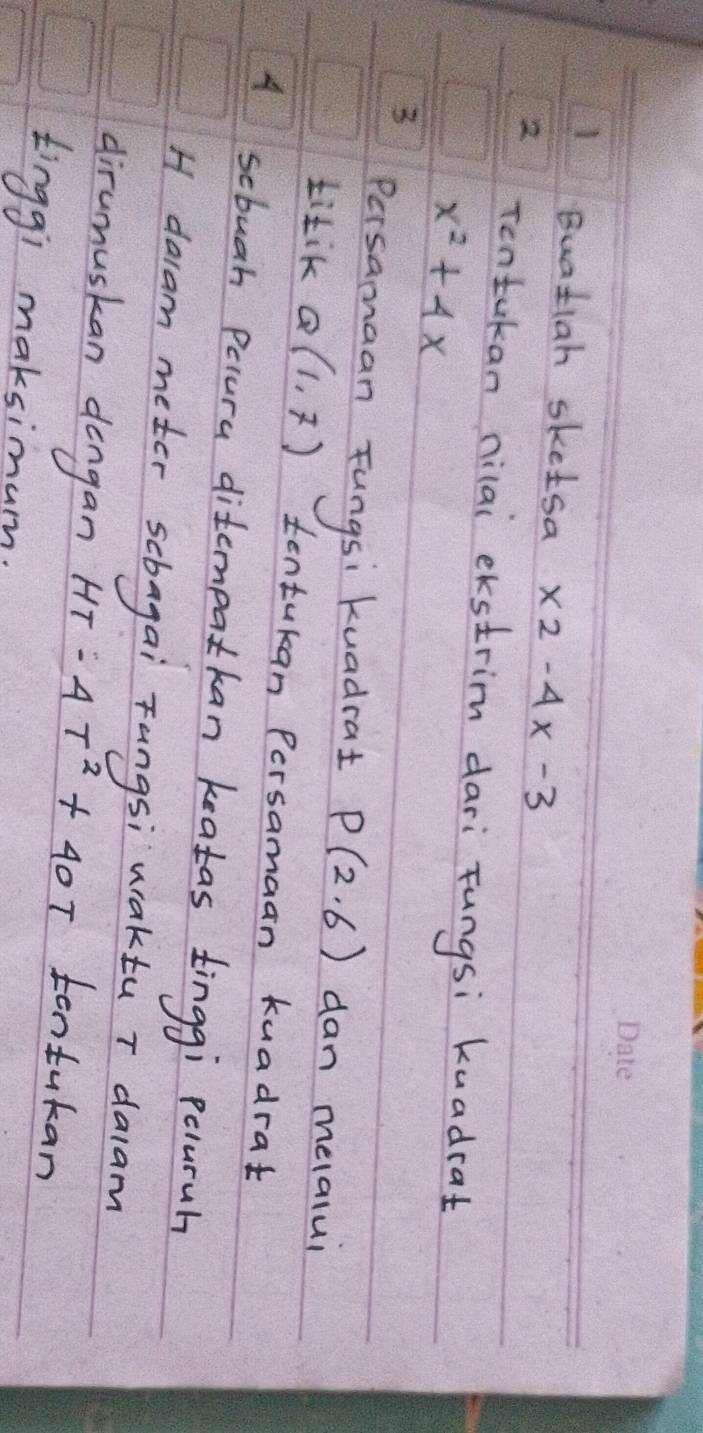 Date
1 Buatlah sketsa x2-4x-3
2 Tentukan nilai ekstrim dari Fungsi kuadrat
x²+4x
3 Persamaan Fungsi kuadrat P(2.6) dan melalui
titik Q(1.7) tentukan Persamaan kuadrat
4 sebuah Peluru ditempatkan keatas tinggi Peluruh
H dalam meter sebagai Fungsi waktu T dalam
dirumuskan dengan HT-4T²+40T tentukan
tinggi maksimum.